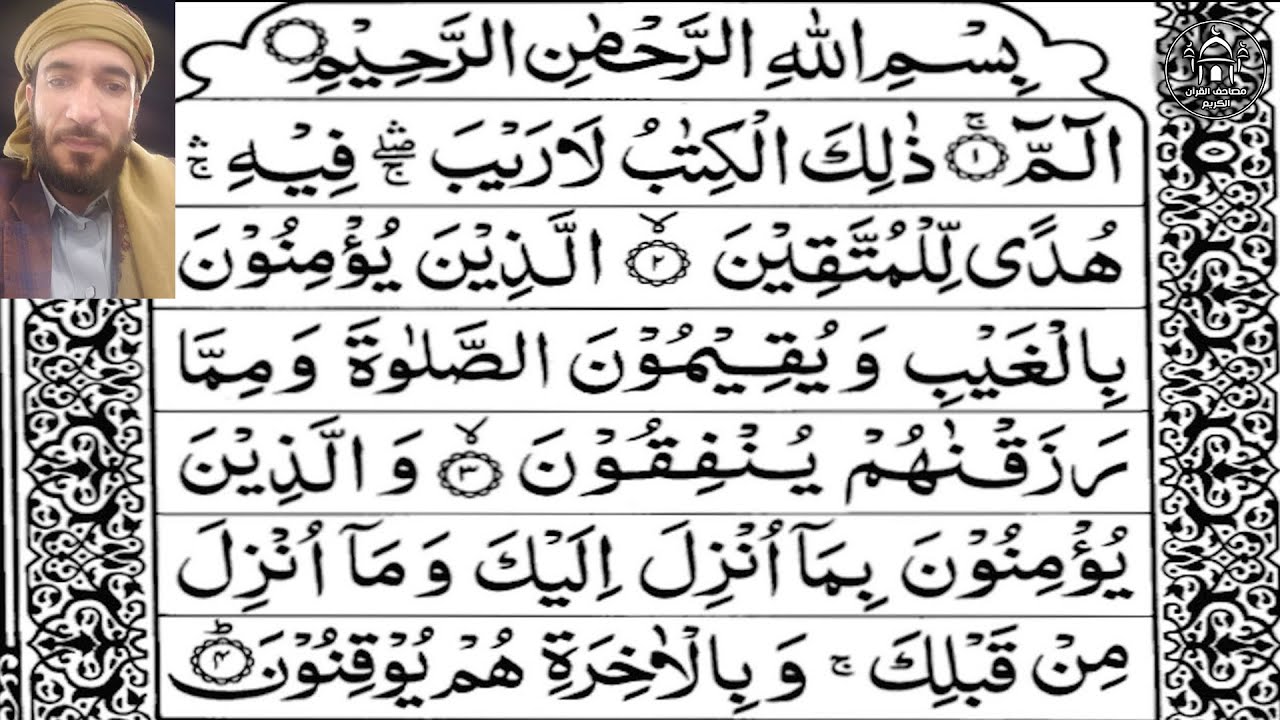 بِسْمِ اللهِ الرَّحْمٰنِ الرَّحِيْمِ
الٓمّٓ ۚ‏﴿۱﴾ ذٰلِكَ الْكِتٰبُ لَا رَيْبَ ۛۖۚ فِيْهِ ۛۚ
هُدًى لِّلْمُتَّقِيْنَ ۙ﴿۲﴾ الَّذِيْنَ يُؤْمِنُوْنَ
بِالْغَيْبِ وَيُقِيْمُوْنَ الصَّلٰوةَ وَمِمَّا
رَزَقْنٰهُمْ يُنْفِقُوْنَ ۙ﴿۳﴾ وَالَّذِيْنَ
يُؤْمِنُوْنَ بِمَآ اُنْزِلَ اِلَيْكَ وَمَآ اُنْزِلَ
مِنْ قَبْلِكَ ۚ وَبِالْاٰخِرَةِ هُمْ يُوْقِنُوْنَ ؕ﴿۴﴾
مصاحف القرآن
الكريم